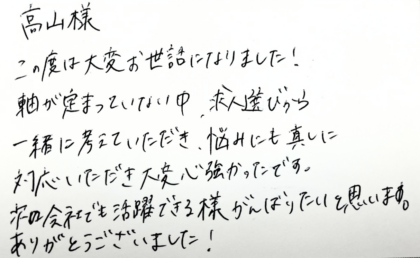 高山様
この度は大変お世話になりました！
軸が定まっていない中、求人選びから
一緒に考えていただき、悩みにも真しに
対応いただき大変心強かったです。
次の会社でも活躍できる様がんばりたいと思います。
ありがとうございました！